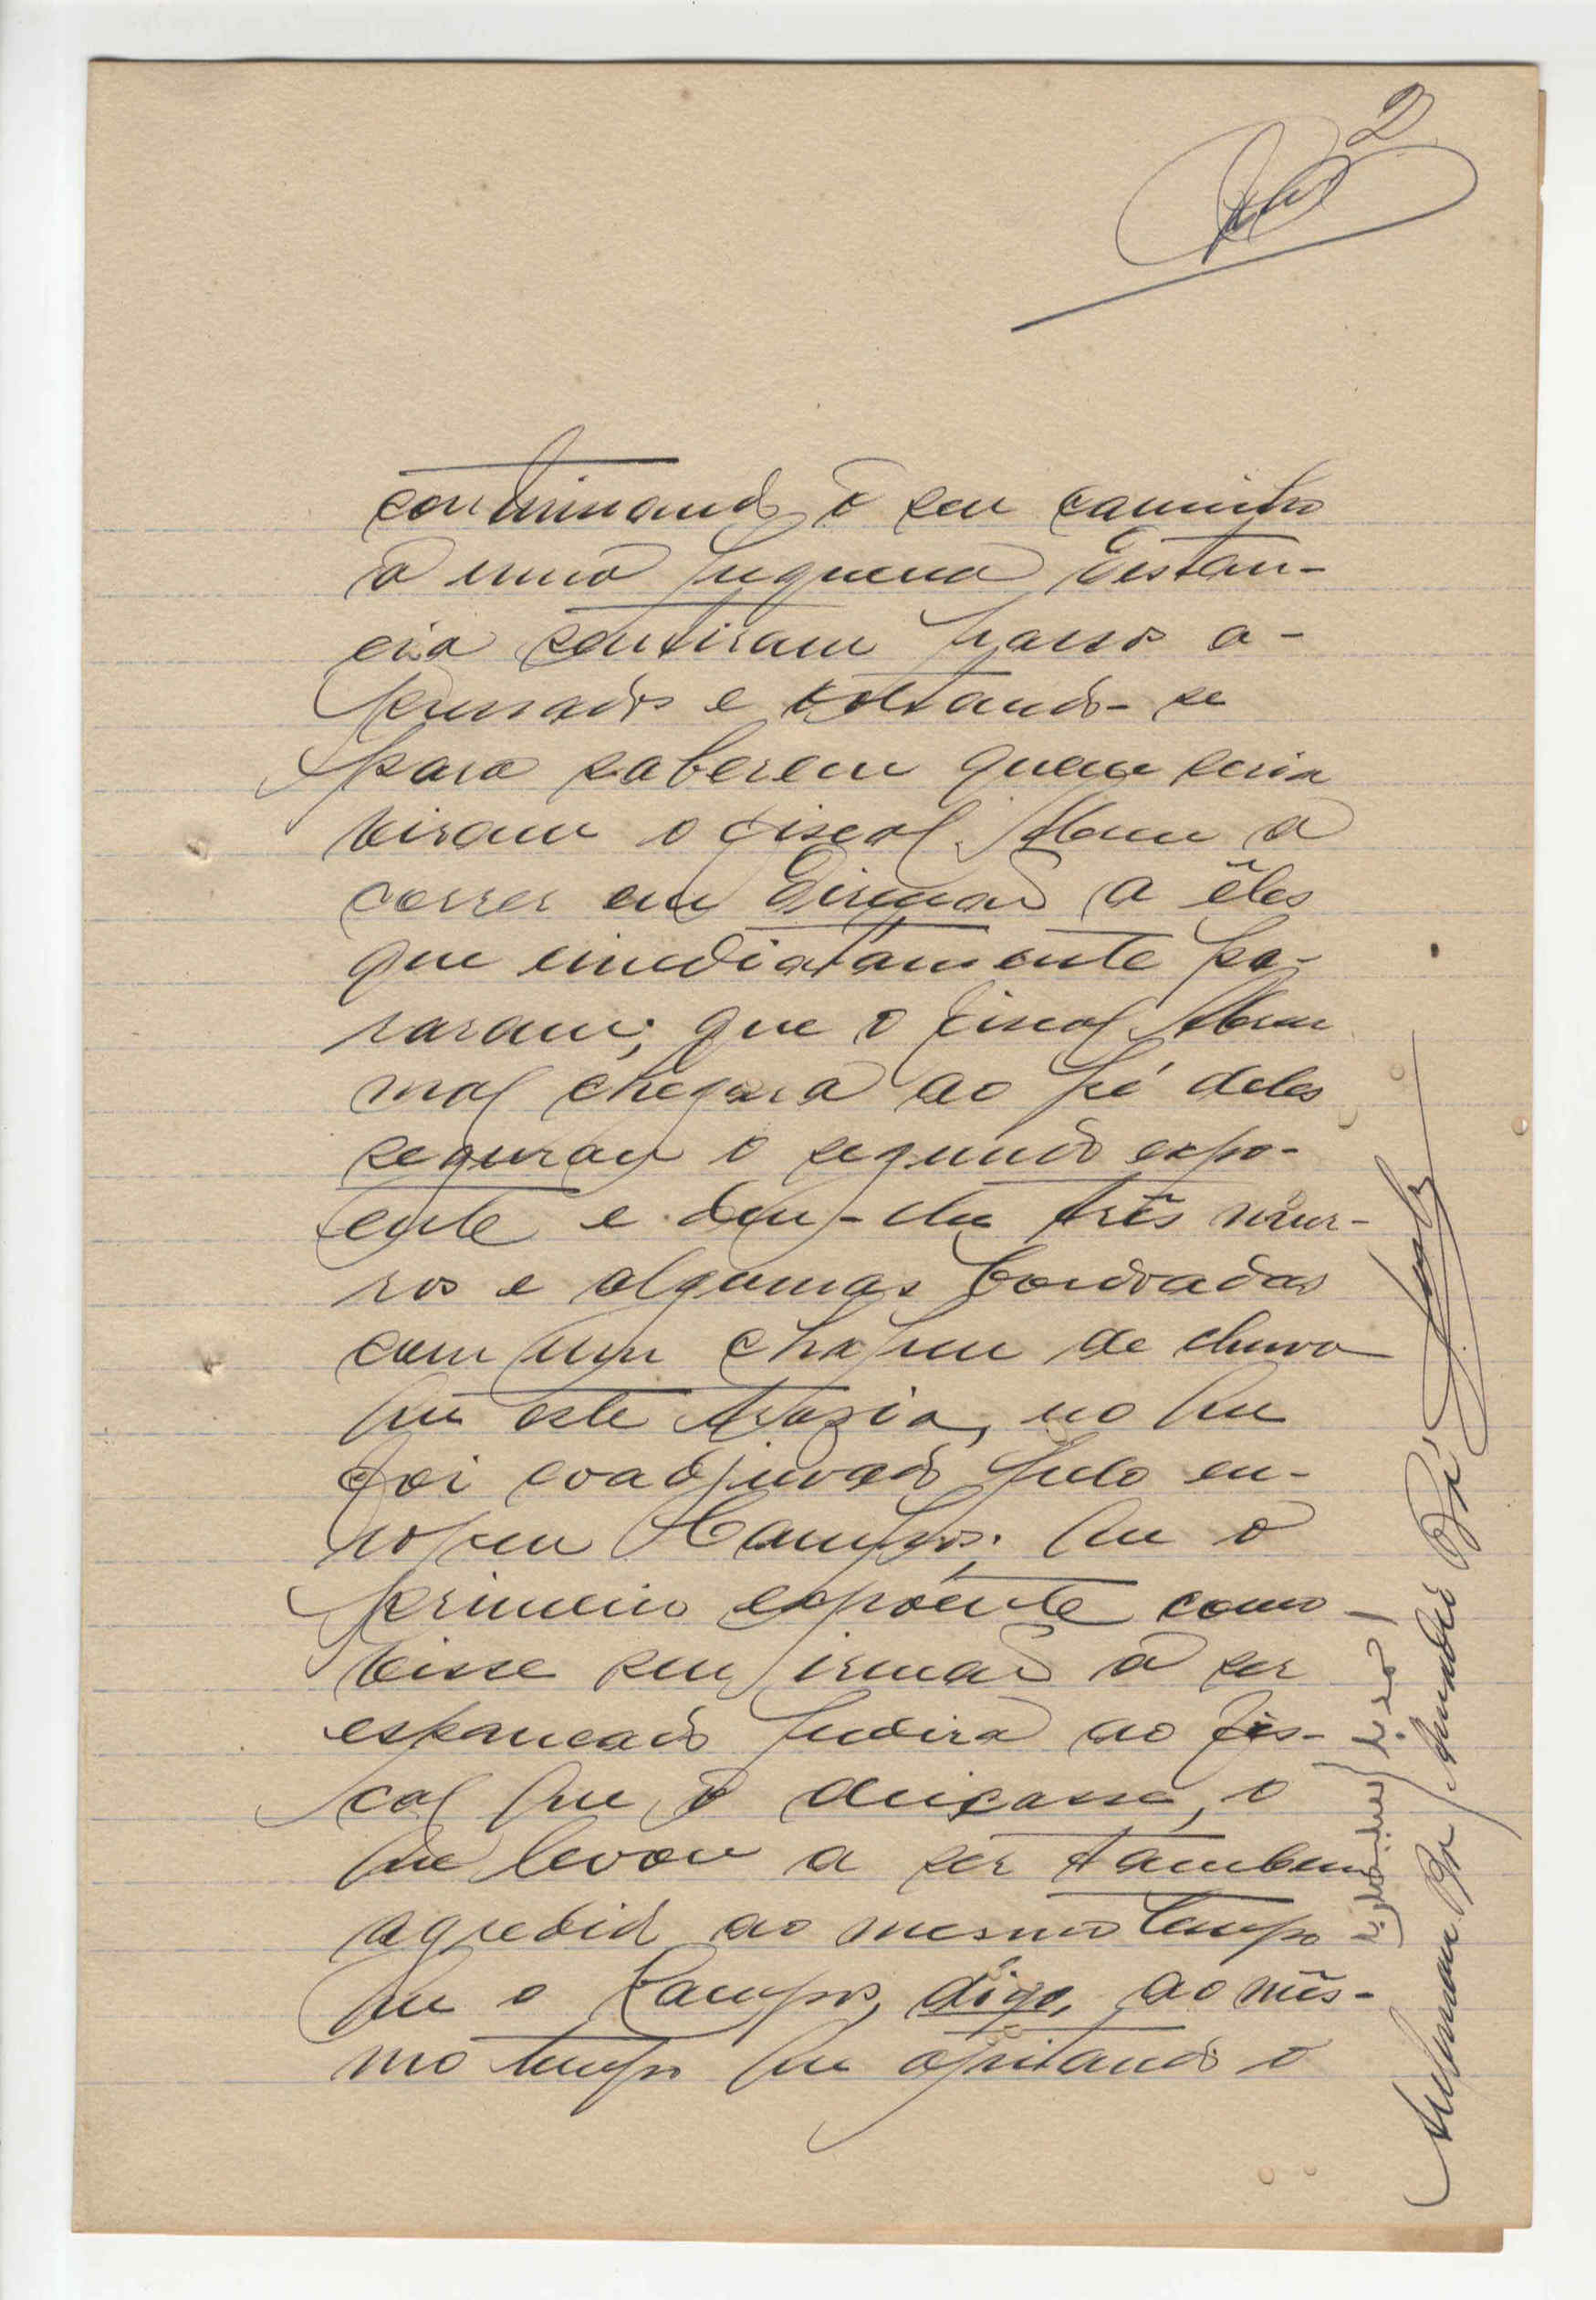 2
continuando o seu caminho
a uma pequena distan-
cia sentiram passos a-
pressados e voltando-se
para saberem quem seria
viram o fiscal Abreu a
correr em direcção a êles
que imediatamente pa-
raram; que o fiscal Abreu
mal chegara ao pé deles
segurou o segundo expo-
ente e deu-lhe três mur-
ros e algumas bordoadas
com um chapeu de chuva
que este trazia, no que
foi coadjuvado pelo eu-
ropeu Campos; que o
primeiro expoente como
visse seu irmão a ser
espancado pedira ao fis-
cal que o deixasse, o
que levou a ser tambem
agredido ao mesmo tempo
que o Campos, digo, ao mês-
mo tempo que apitando o